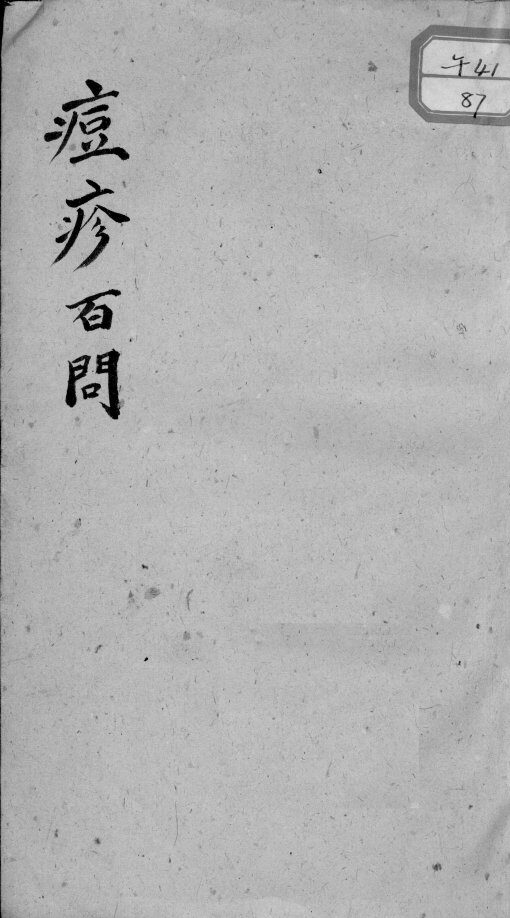 痘疹百問
午41
87